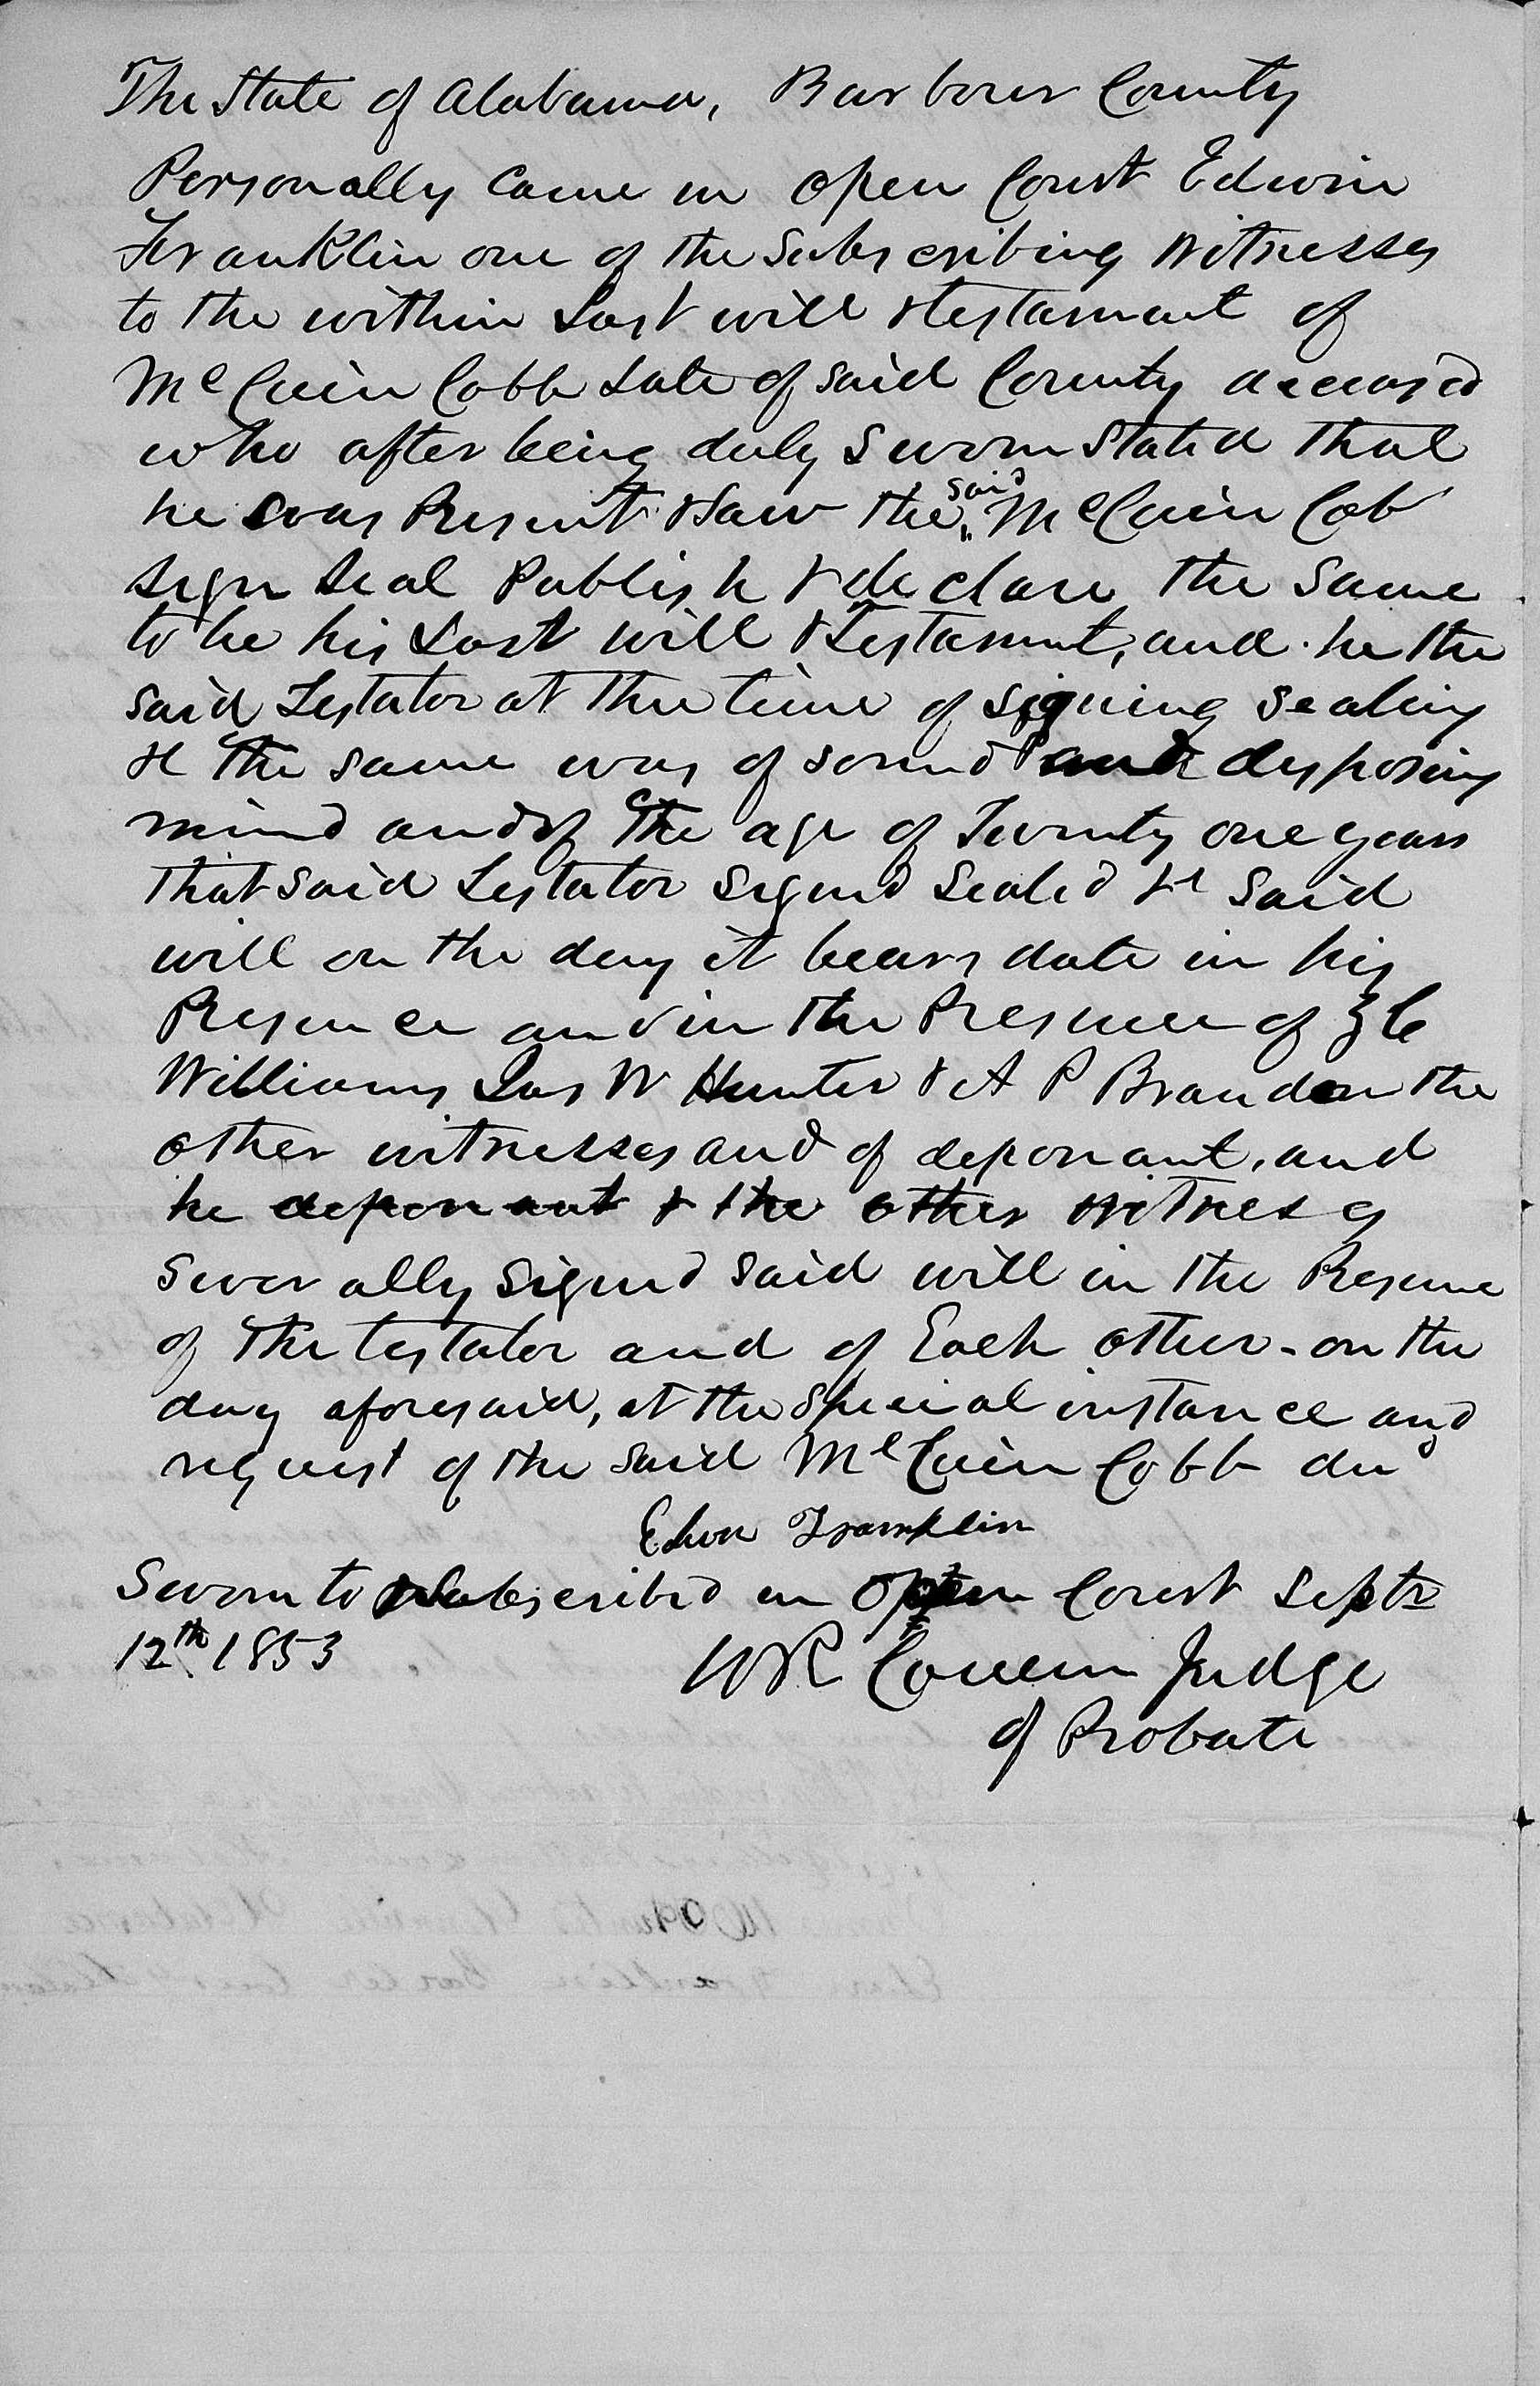 The State of Alabama, Barbour County
Personally Came in open Court Edwin
Franklin one of the Subscribing Witnesses
to the within Last will & testament of
McCuin Cobb Late of said County deceas'd
who after being duly sworn stated that
he was Present & Saw the said McCuin Cob
sign Seal Publish & declare the Same
to be his Last will & Testament, and he the
said Testator at the time of signing Sealing
&c the same was of sound & disposing
mind and of the age of Twenty one years
That said Testator signd Seal'd &c said
will on the day it bears date in his
Presence and in the Presence of Z C
Williams Jas W Hunter & A P Brandon the
other witnesses and of deponant, and
he deponant & the other Witness es
severally signd said will in the Presence
of the testator and of Each other - on the
day aforesaid, at the Special instance and
request of the said McCuin Cobb
Edwn Franklin
Sworn to & Subscribed in Open Court Septr
12th 1853
W R Cowen Judge
of Probate